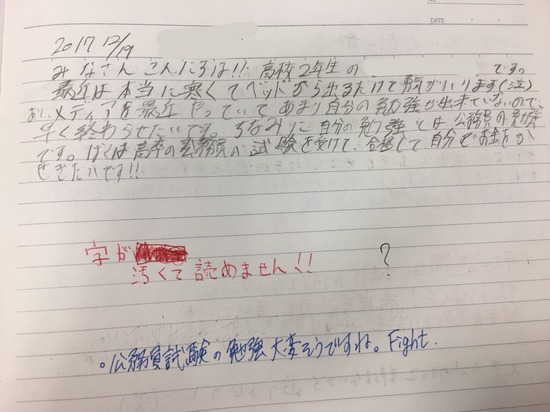 DATE
2017 12/19
みなさん こんにちは!! 高校2年生の です。
最近は本当に寒くてベッドから出るだけで勇気がいります(泣)
メディアを最近やっていてあまり自分の勉強が出来ていないので、
早く終わらせたいです。ちなみに自分の勉強とは公務員の勉強
です。ぼくは高卒の公務員の試験を受けて、合格して自分でお金をか
せぎたいです!!
字が
汚くて読めません!!
?
。公務員試験の勉強大変そうですね。Fight.